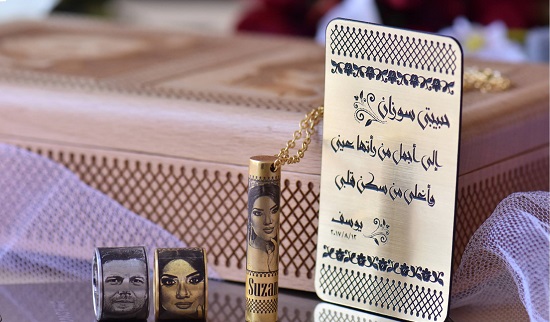 حبيبتي سوزان
إلى أجمل من رأتها عيني
وأغلى من سكن قلبي
يوسف
٢٠١٧/٨/١٢
Suzan